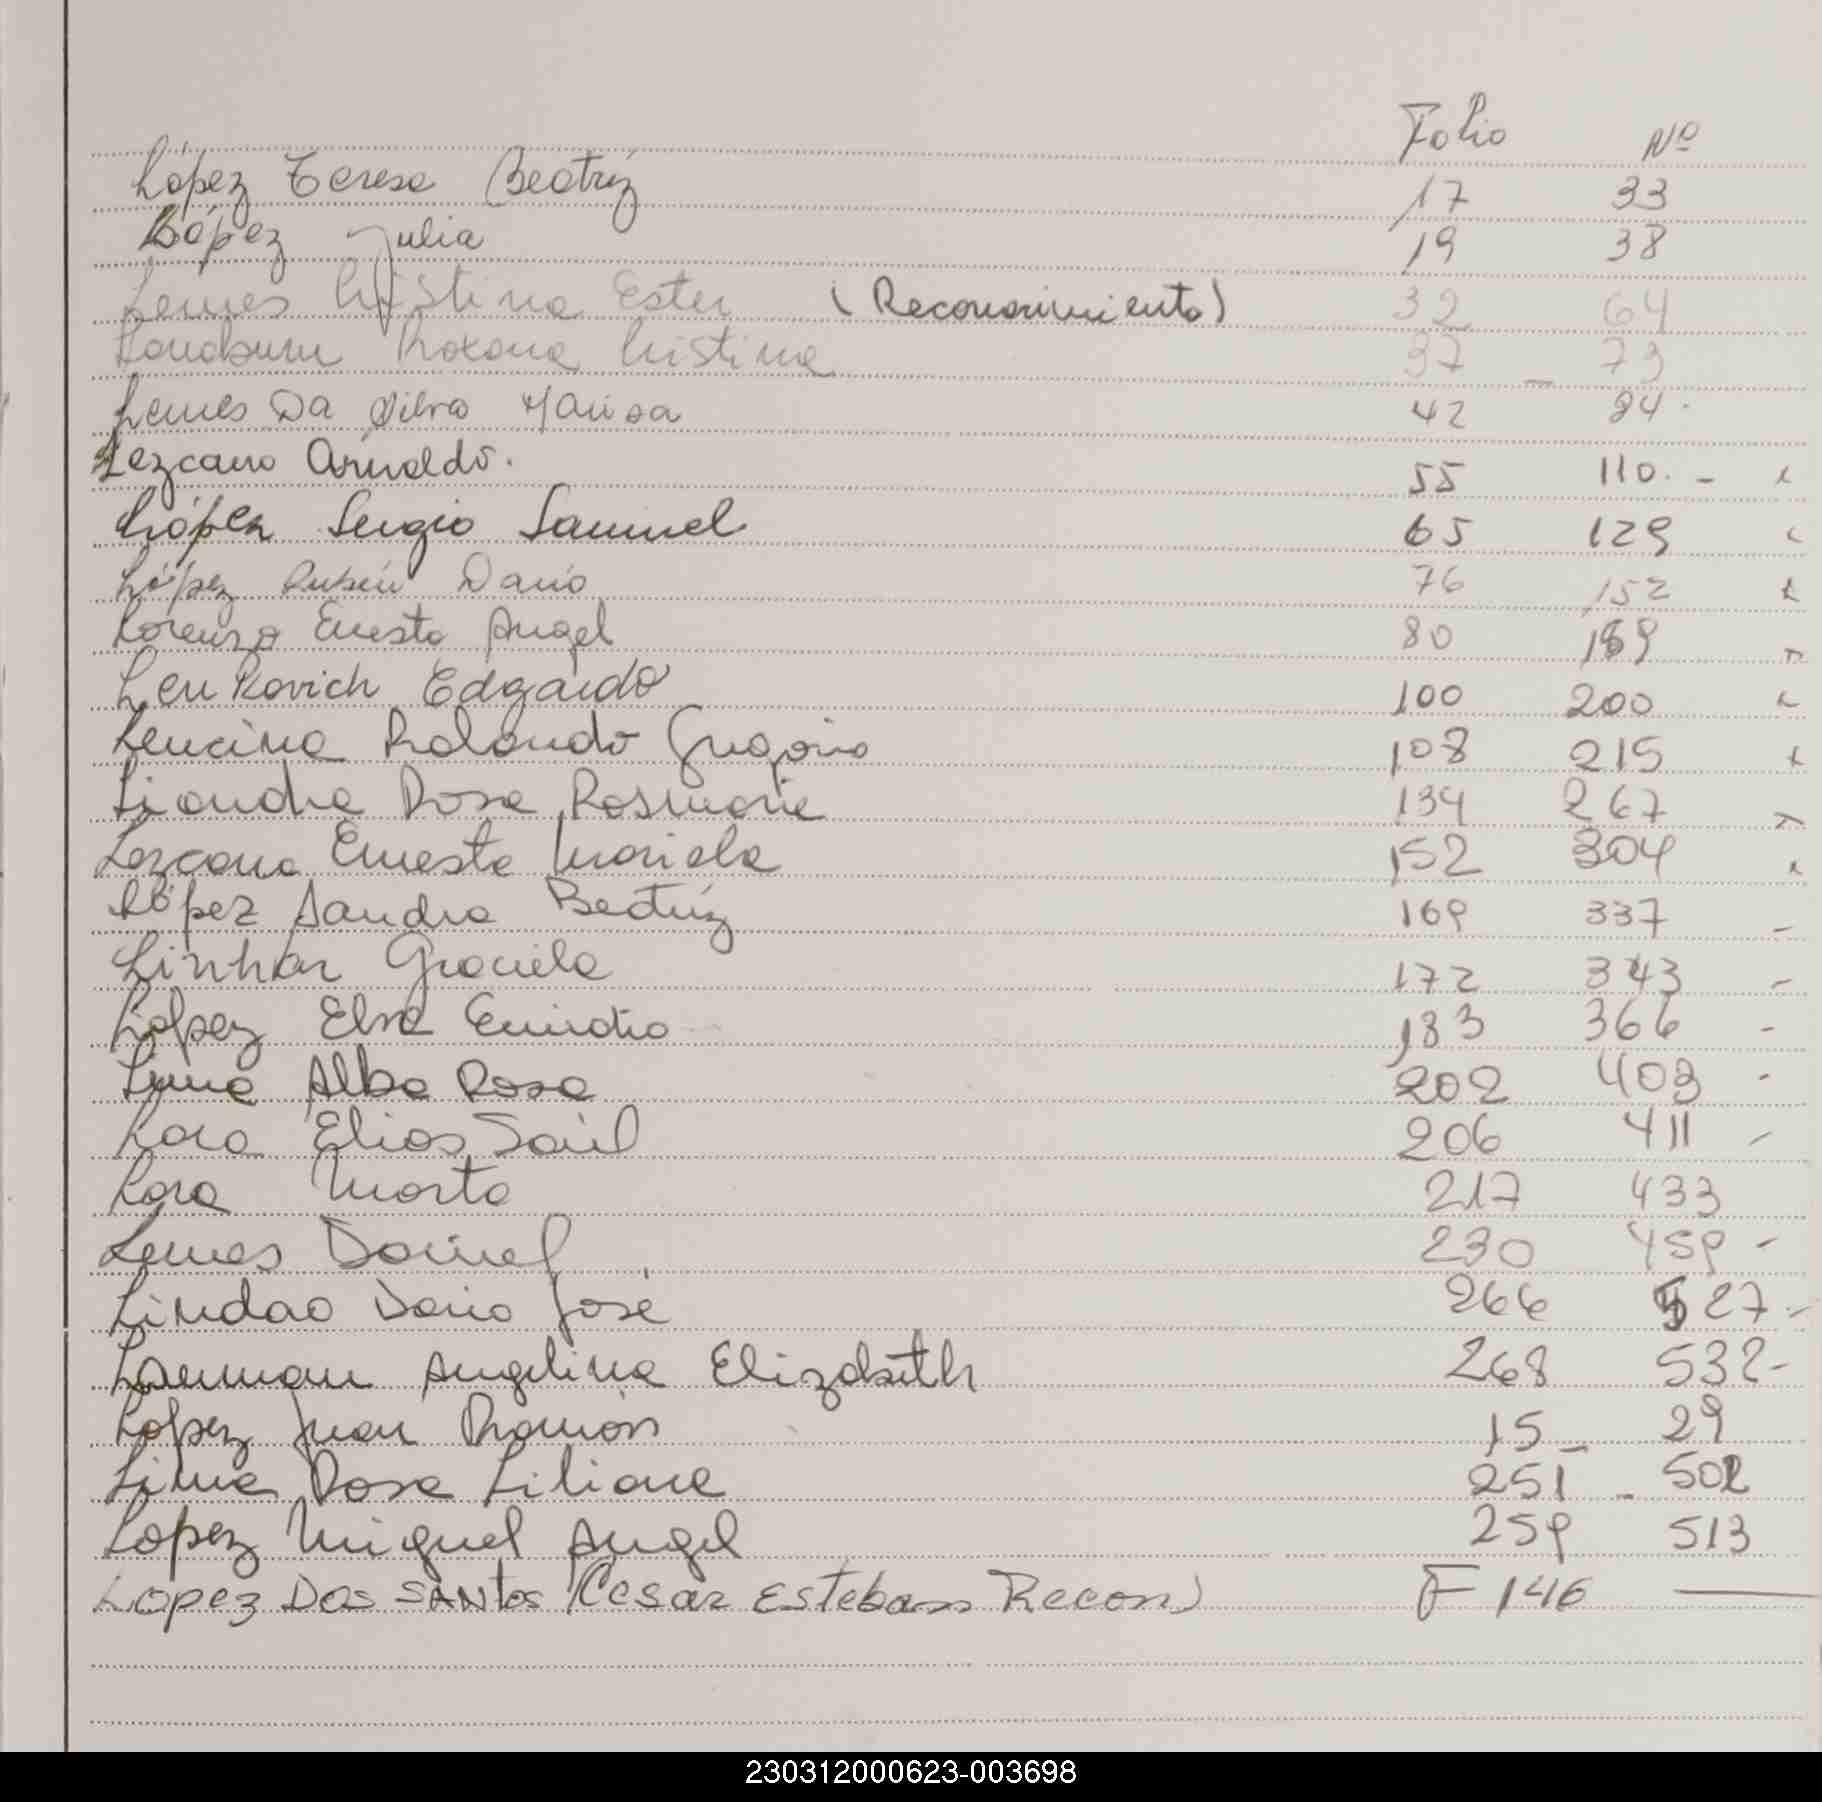 Folio Nº
López Teresa Beatríz 17 33
López Julia 19 38
Lemes Cristina Ester (Reconocimiento) 32 64
Roxana Cristina 37 - 73
Lemes Da Silva Marisa 42 84.
Lezcano Arnaldo. 55 110. -
López Sergio Samuel 65 129
López Rubén Darío 76 152
Lorenzo Ernesto Angel 80 159
Leukovich Edgardo 100 200
Lencina Rolando Gregorio 108 215
Rosa Rosmarie 134 267
Lezcano Ernesto Mariela 152 304
López Sandra Beatríz 169 337 -
Linhar Graciela 172 343 -
López Elsa Emidio 183 366 -
Luna Alba Rosa 202 403 -
Lara Elias Saúl 206 411 -
Lara Marta 217 433
Lemes Daniel 230 459 -
Lindao Dario José 266 527 -
Angelina Elizabeth 268 532 -
López Juan Ramón 15 - 29
Lima Rosa Liliane 251 - 502
Lopez Miguel Angel 259 513
Lopez Dos Santos (Cesar Esteban Recon) F 146 —
230312000623-003698